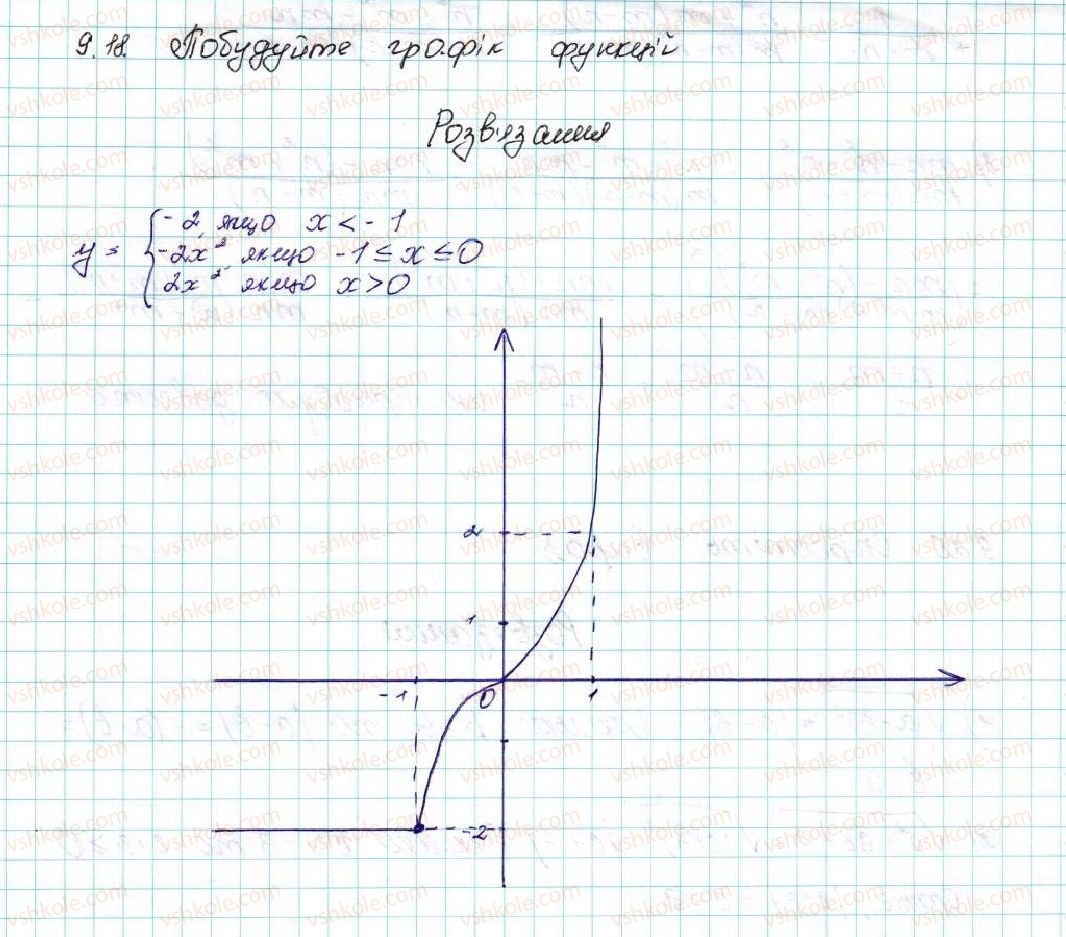 9.18. Побудуйте графік функцій
Розв'язання
y = { -2, якщо x < -1
-2x², якщо -1 ≤ x ≤ 0
2x² якщо x > 0
2
1
-1 0 1
-2